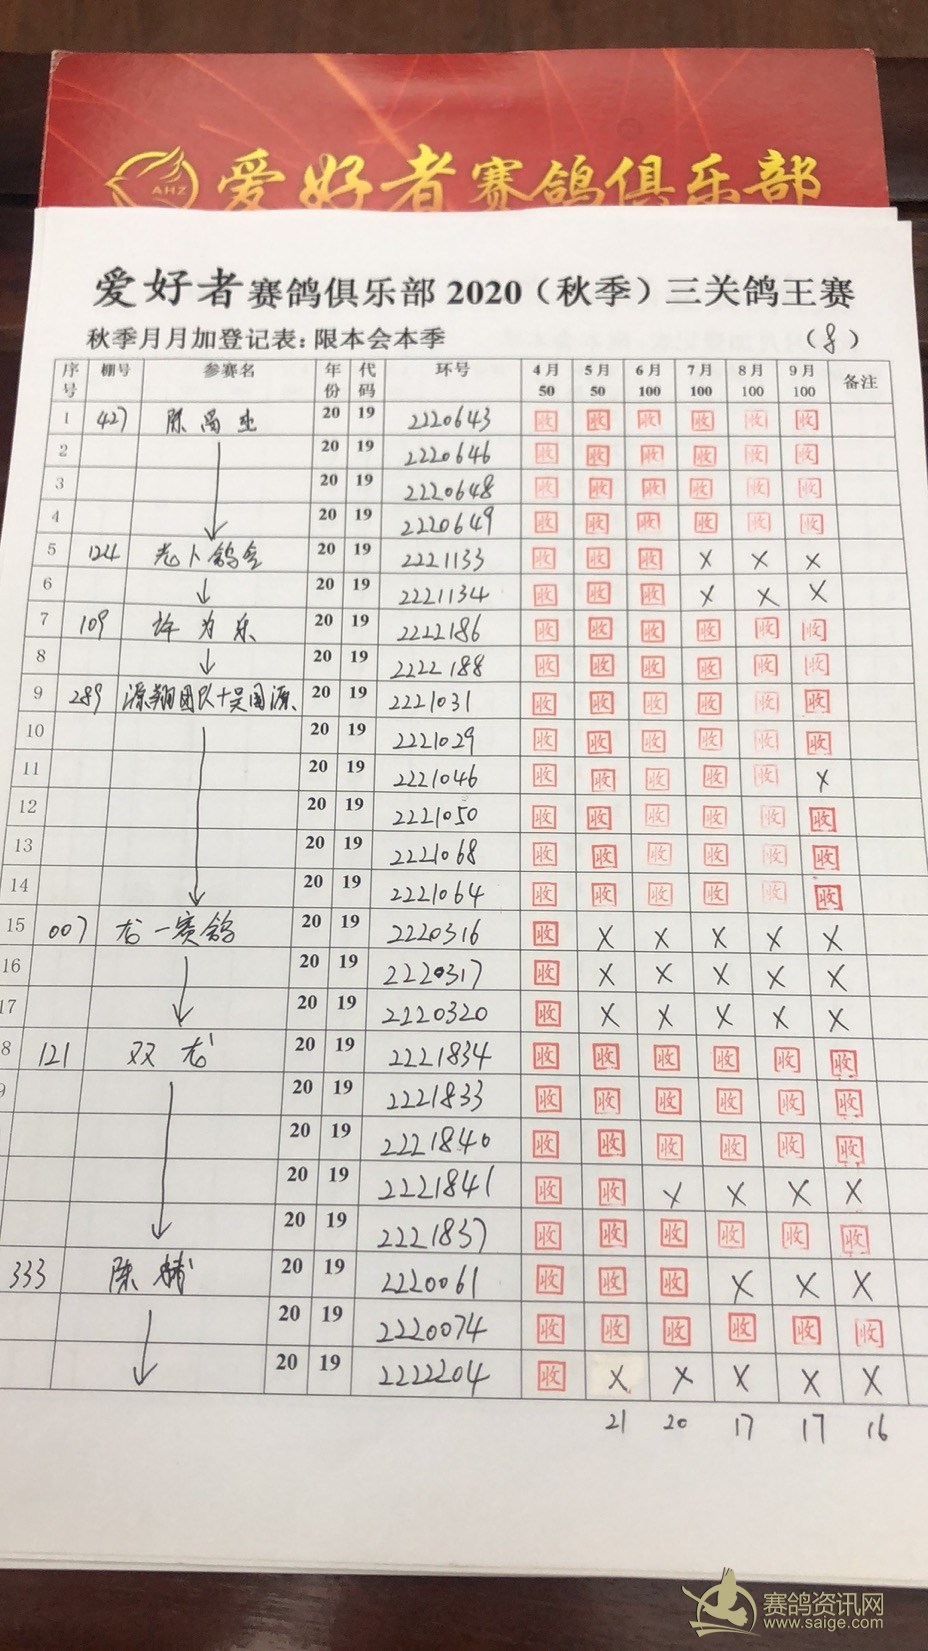 AHZ 爱好者赛鸽俱乐部
爱好者赛鸽俱乐部2020（秋季）三关鸽王赛
秋季月月加登记表：限本会本季 （8）
序号 棚号 参赛名 年份 代码 环号 4月 50 5月 50 6月 100 7月 100 8月 100 9月 100 备注
1 427 陈 20 19 2220643 收 收 收 收 收 收
2 20 19 2220646 收 收 收 收 收 收
3 20 19 2220648 收 收 收 收 收 收
4 20 19 2220649 收 收 收 收 收 收
5 124 老卜鸽舍 20 19 2221133 收 收 收 X X X
6 20 19 2221134 收 收 收 X X X
7 109 许为乐 20 19 2222186 收 收 收 收 收 收
8 20 19 2222188 收 收 收 收 收 收
9 289 源翔团队+吴国源 20 19 2221031 收 收 收 收 收 收
10 20 19 2221029 收 收 收 收 收 收
11 20 19 2221046 收 收 收 收 收 X
12 20 19 2221050 收 收 收 收 收 收
13 20 19 2221068 收 收 收 收 收 收
14 20 19 2221064 收 收 收 收 收 收
15 007 龙一赛鸽 20 19 2220316 收 X X X X X
16 20 19 2220317 收 X X X X X
17 20 19 2220320 收 X X X X X
8 121 双龙 20 19 2221834 收 收 收 收 收 收
9 20 19 2221833 收 收 收 收 收 收
20 19 2221840 收 收 收 收 收 收
20 19 2221841 收 收 X X X X
20 19 2221837 收 收 收 收 收 收
333 陈 20 19 2220061 收 收 收 X X X
20 19 2220074 收 收 收 收 收 收
20 19 2222204 收 X X X X X
21 20 17 17 16
赛鸽资讯网
www.saige.com